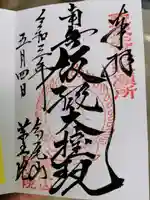 奉拝
南無飯縄大権現
令和二年
五月四日
高尾山
薬王院